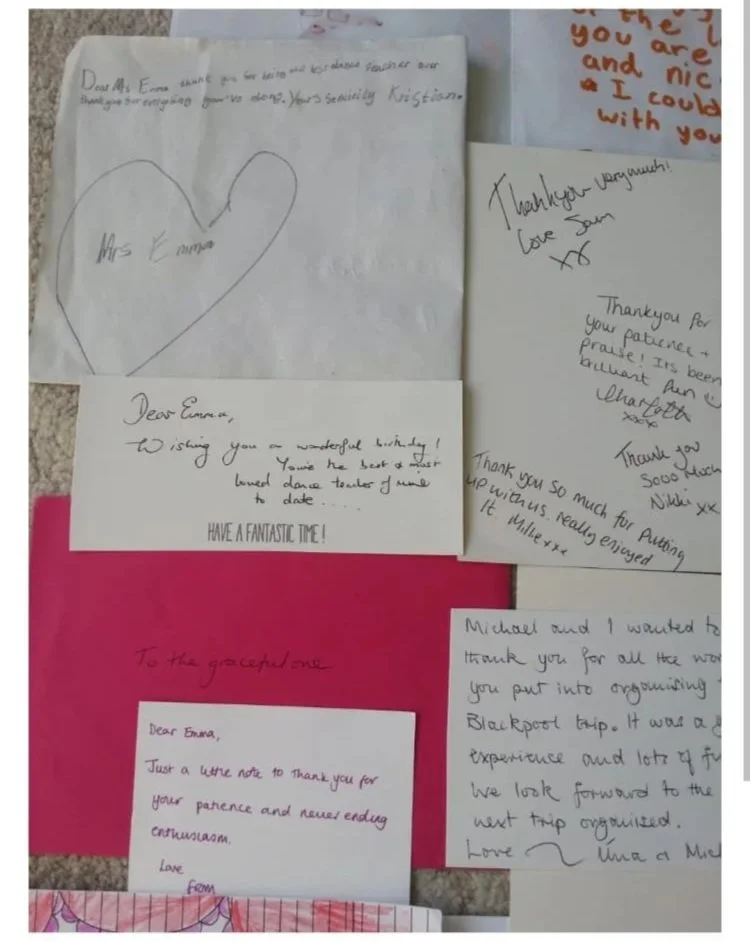 Dear Ms Emma thank you for being the best dance teacher ever
thank you for everything you've done. Yours sencirily Kristian.
Mrs Emma
the
you are
and nic
I could
with you
Thankyou very much!
Love Sam
xx
Thankyou for
your patience +
praise! Its been
brilliant fun
Charlotte
xxx
Thank you
Sooo Much
Nikki xx
Thank you so much for putting
up with us. really enjoyed
it Mike xxx
Dear Emma,
Wishing you a wonderful birthday!
You're the best & most
loved dance teacher of mine
to date.....
HAVE A FANTASTIC TIME!
To the graceful one
Dear Emma,
Just a little note to thank you for
your patience and never ending
enthusiasm.
Love
from
Michael and I wanted to
thank you for all the wor
you put into organising
Blackpool trip. It was a g
experience and lots of fu
We look forward to the
next trip organised.
Love Úna & Mich